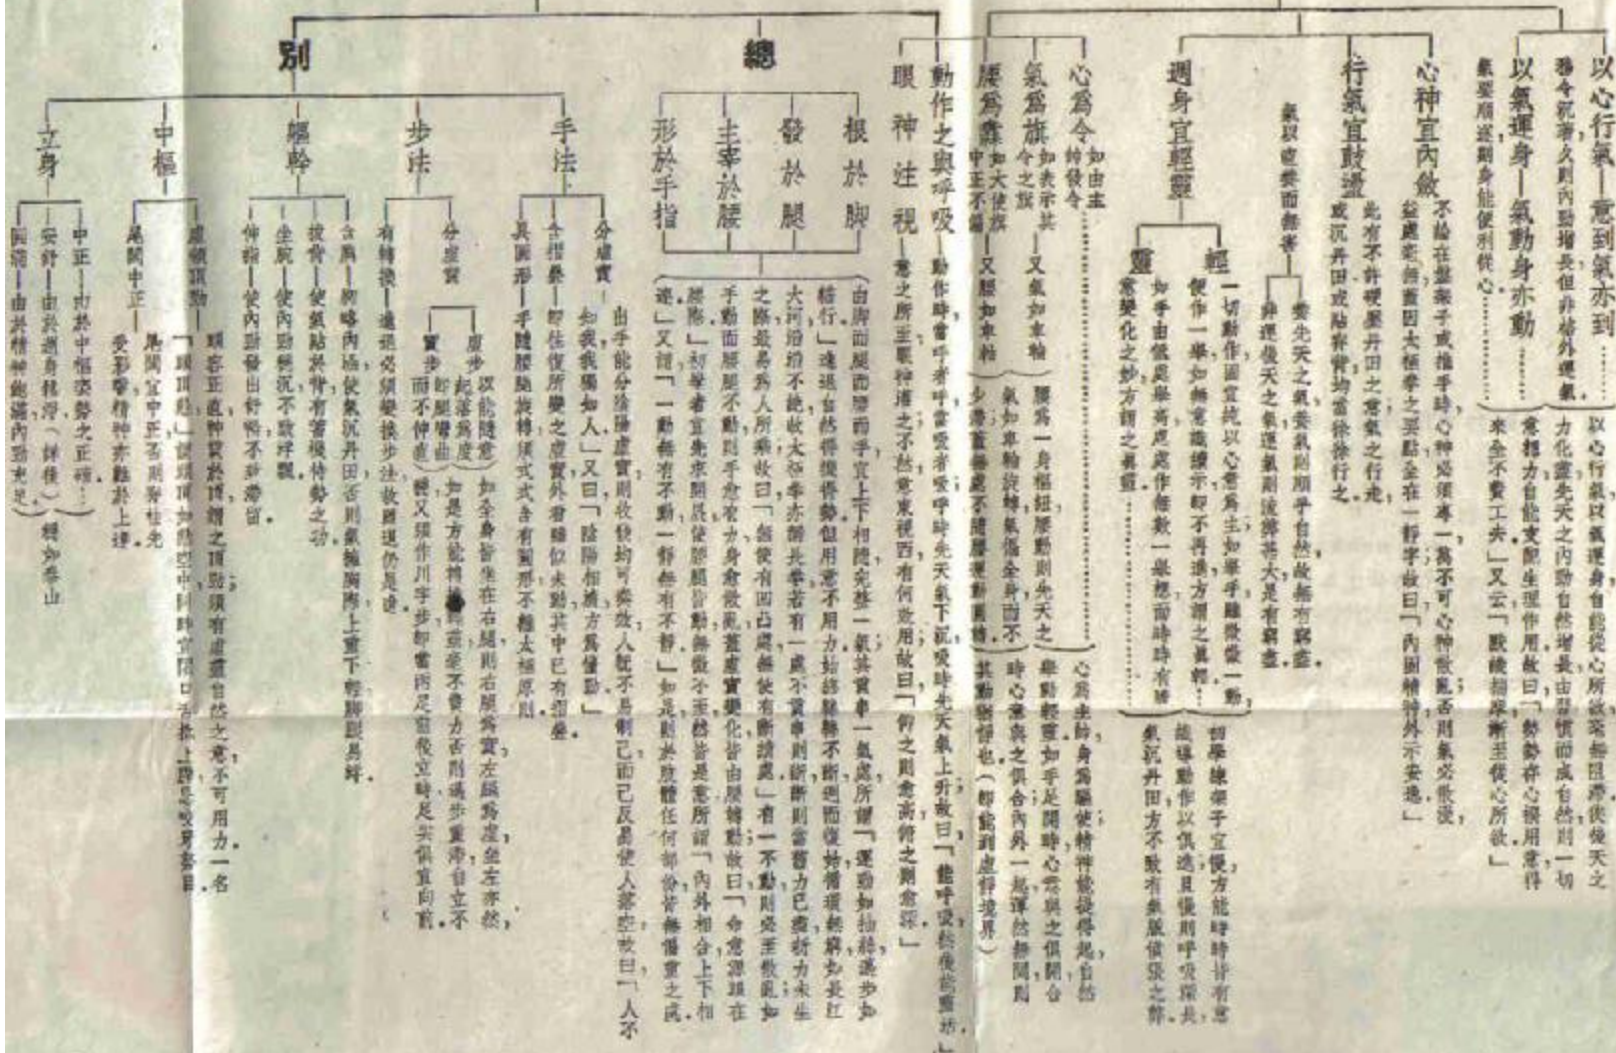 以心行氣—意到氣亦到
務令沉著久則內勁增長但非格外運氣
以氣運身—氣動身亦動
氣要順遂則身能便利從心
以心行氣以氣運身自能從心所欲毫無阻滯使後天之
力化盡先天之內勁自然增長由習慣而成自然則一切
意想力自能支配生理作用故曰「勢勢存心揆用意得
來全不費工夫」又云「默識揣摩漸至從心所欲」
心神宜內斂
不論在盤架子或推手時心神必須專一萬不可心神散亂否則氣必散漫
益處毫無蓋因太極拳之要點全在一靜字故曰「內固精神外示安逸」
行氣宜鼓盪
此有不許硬壓丹田之意氣之行走
或沉丹田或貼脊背均當徐徐行之
氣以直養而無害
養先天之氣養氣則順乎自然故無有窮盡
非運後天之氣運氣則流弊甚大是有窮盡
週身宜輕靈
輕
一切動作固宜純以心意為主如舉手雖微微一動
便作一舉如無意識續示即不再進方謂之真輕
靈
如手由低處舉高處處作無數一舉想而時時有勝
意變化之妙方謂之真靈
初學練架子宜慢方能時時皆有意
識導動作以俱進且慢則呼吸深長
氣沉丹田方不致有氣脈僨張之弊
心為令
如由主
帥發令
氣為旗
如表示其
令之旗
又氣如車輪
腰為纛
如大使旗
中正不偏
又腰如車軸
腰為一身樞紐腰動則先天之
氣如車輪旋轉氣偏全身而不
少滯蓋無處不隨腰運動圓轉
心為主帥身為驅使精神能提得起自然
舉動輕靈如手足開時心意與之俱開合
時心意與之俱合內外一起渾然無間則
其動猶靜也(即能到虛靜境界)
動作之與呼吸—動作時當呼者呼當吸者吸呼時先天氣下沉吸時先天氣上升故曰「能呼吸然後能靈活」
眼神注視—意之所至眼神達之不然意東視西有何效用故曰「仰之則愈高俯之則愈深」
總
根於脚
發於腿
主宰於腰
形於手指
由脚而腿而腰而手宜上下相隨完整一氣其貫串一氣處所謂「運勁如抽絲邁步如
貓行」進退自然得機得勢但用意不用力始終綿綿不斷週而復始循環無窮如長江
大河滔滔不絕故太極拳亦謂長拳若有一處不貫串則斷斷則當舊力已盡新力未生
之際最易為人所乘故曰「無使有凹凸處無使有斷續處」有一不動則必至散亂如
手動而腰腿不動則手愈有力身愈散亂蓋虛實變化皆由腰轉動故曰「命意源頭在
腰際」初學者宜先求開展使腰腿皆動無微不至然皆是意所謂「內外相合上下相
連」又謂「一動無有不動一靜無有不靜」如是則於肢體任何部份皆無偏重之虞
別
手法
分虛實
出手能分陰陽虛實則收發均可奏效人既不易制己而己反易使人落空故曰「人不
知我我獨知人」又曰「陰陽相濟方為懂勁」
含摺疊—即往復所變之虛實外看雖似未動其中已有摺疊
具圓形—手隨腰腿旋轉須式式含有圓形不離太極原則
步法
分虛實
虛步
以能隨意
起落為度
實步
即腿彎曲
而不伸直
如全身皆坐在右腿則右腿為實左腿為虛坐左亦然
如是方能轉換輕靈毫不費力否則邁步重滯自立不
穩又須作川字步即當兩足前後立時足尖俱宜向前
有轉換—進退必須變換步法故雖退仍是進
軀幹
含胸—胸略內涵使氣沉丹田否則氣擁胸際上重下輕脚跟易浮
拔背—使氣貼於背有蓄機待勢之功
坐腕—使內勁雄沉不致浮飄
伸指—使內勁發出舒暢不致滯留
中樞
虛領頂勁
頭容正直神貫於頂謂之頂勁須有虛靈自然之意不可用力一名
尾閭中正
尾閭宜中正否則脊柱先
受影響精神亦難於上達
立身
中正—由於中樞姿勢之正確
安舒—由於週身鬆淨(詳後)
圓滿—由於精神飽滿內勁充足
穩如泰山